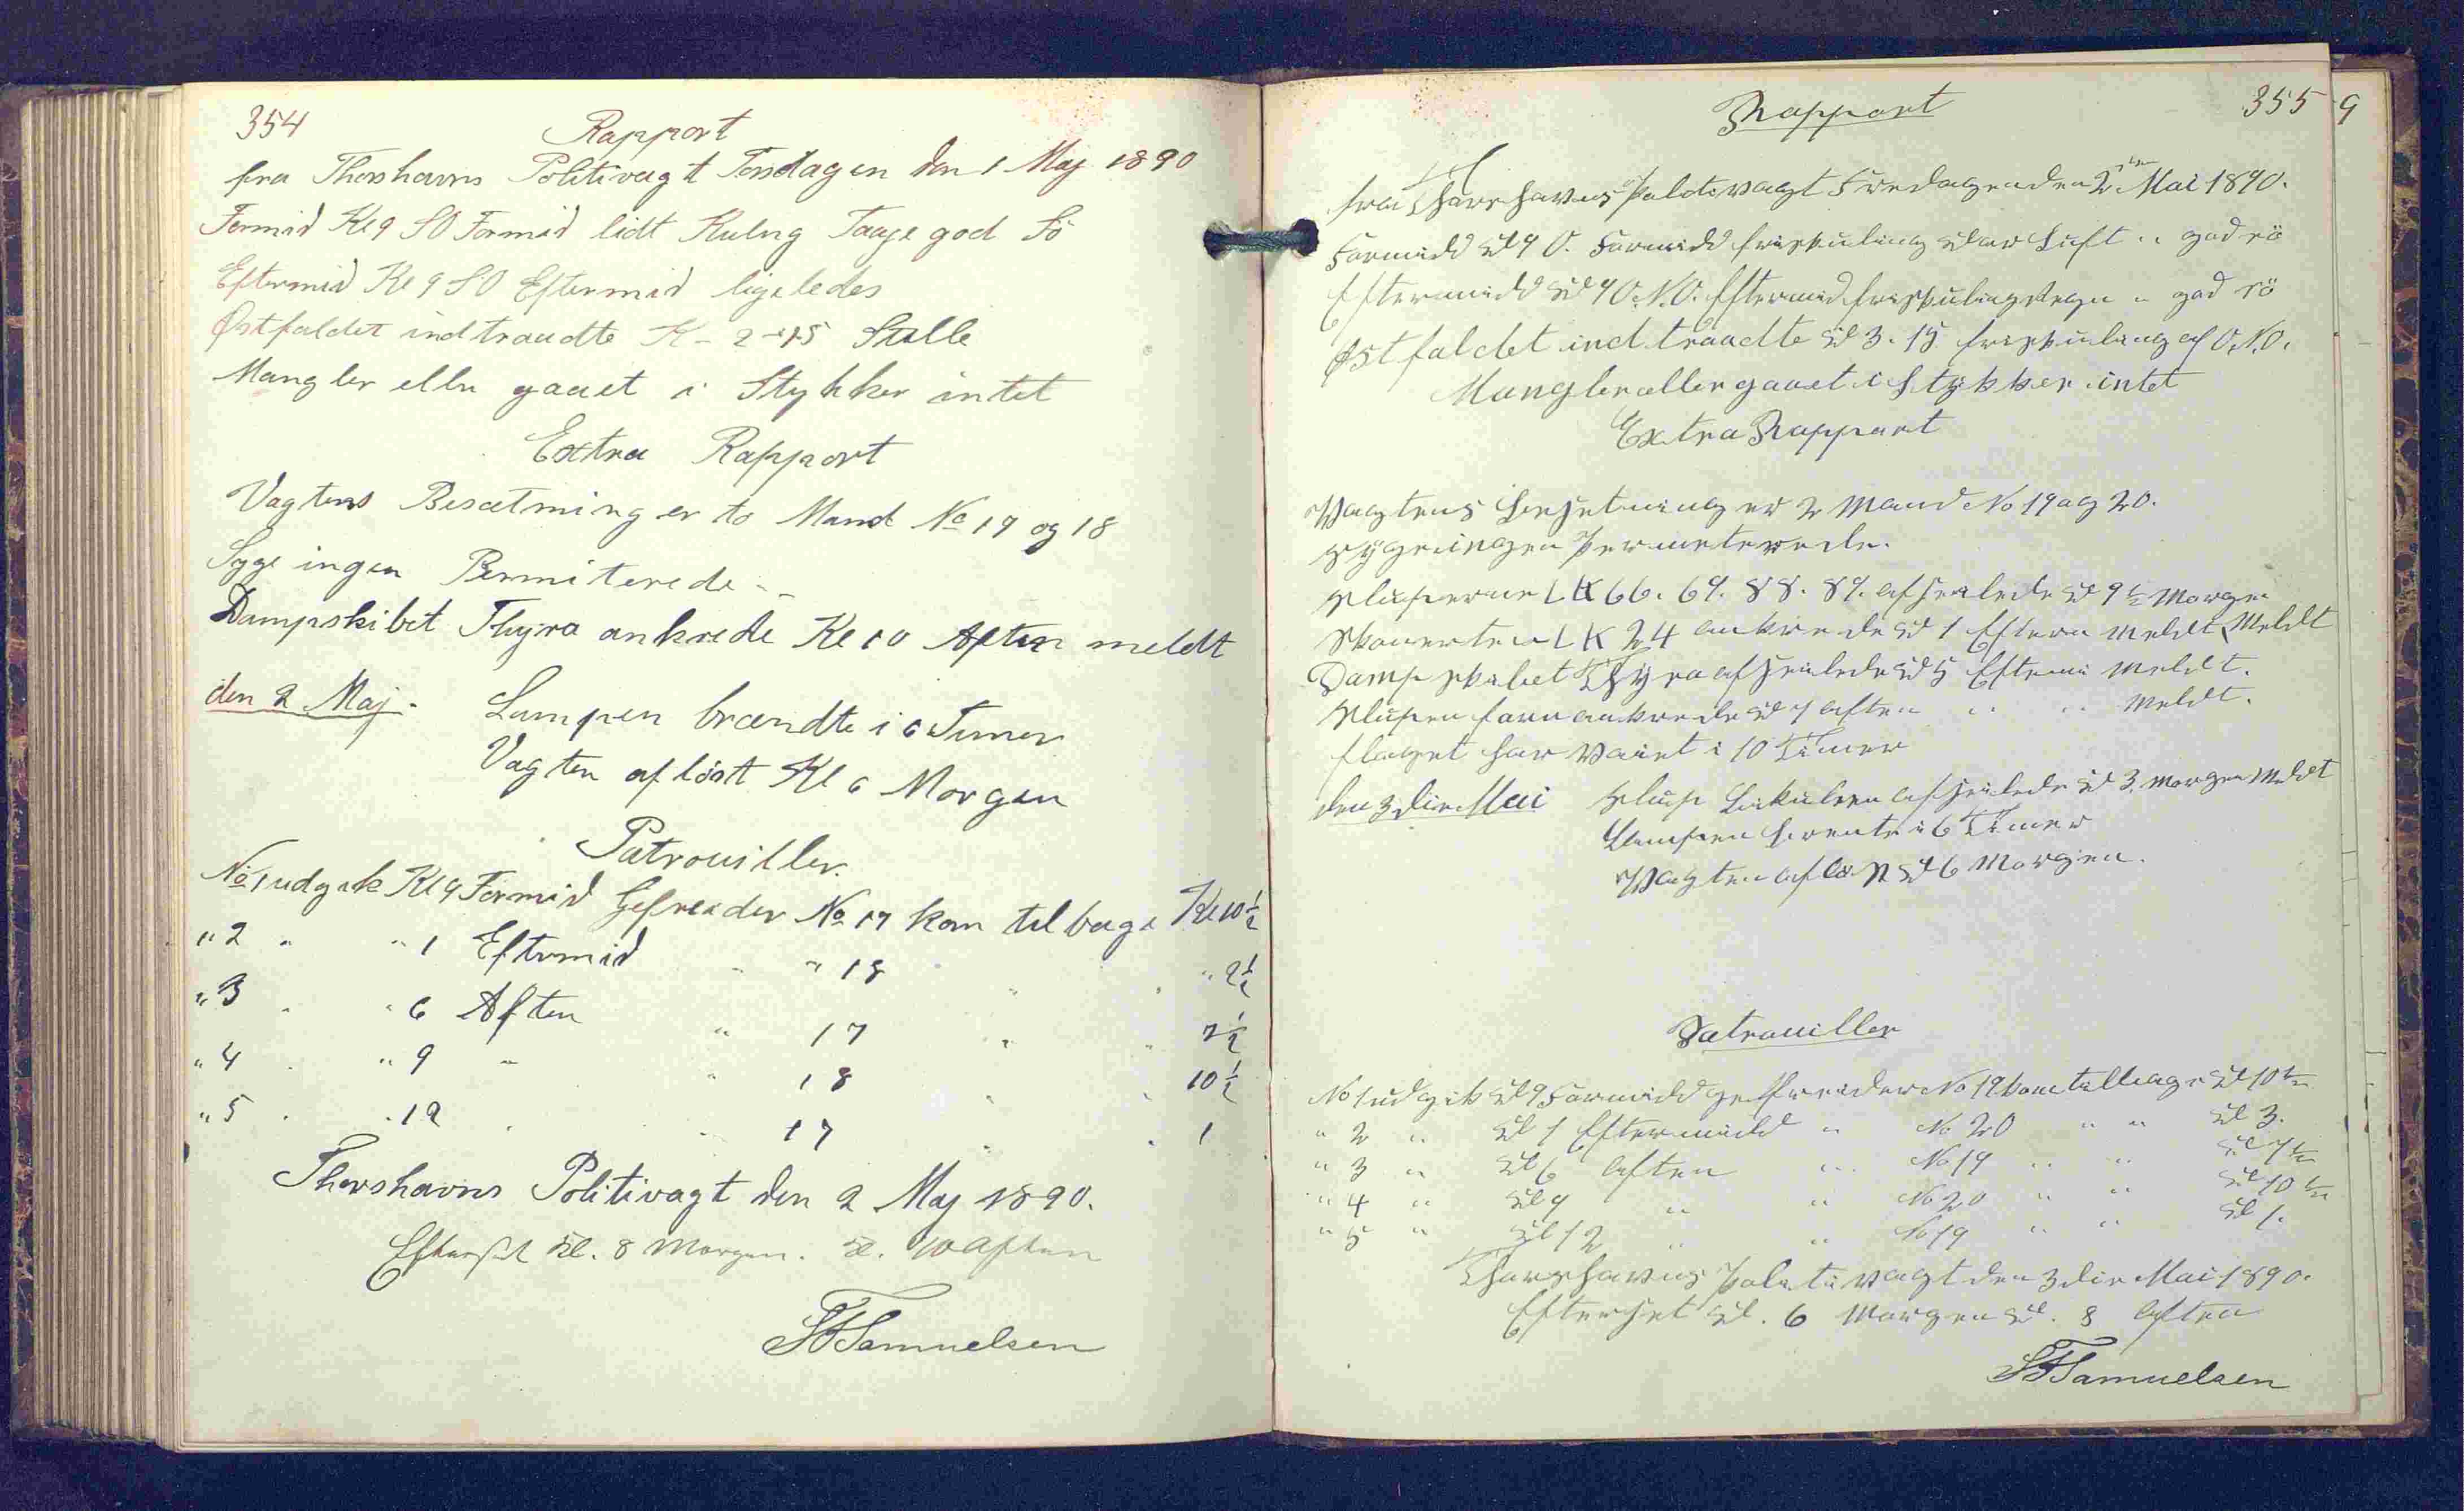 354
Rapport
fra Thorshavns Politivagt Torsdagen den 1 Maj 1890
Formid Kl 9 SO Formid lidt Kulng Taage god Sö
Eftermid Kl 9 SO Eftermid ligeledes
Østfaldet indtraadte K - 2-15 Stille
Mangler eller gaaet i Stykker intet
Extra Rapport
Vagtens Besætning er to Mand No 17 og 18
Syge ingen Permiterede - -
Dampskibet Thyra ankrede Kl 10 Aften meldt
den 2 Maj. Lampen brændte i 6 Timer
Vagten aflöst Kl 6 Morgen
Patrouiller.
No 1 udgik Kl 9 Formid Gefreider No 17 kom tilbage Kl 10 1/2
" 2 " " 1 Eftermid " " 18 " " " 2 1/2
" 3 " " 6 Aften " 17 " " 7 1/2
" 4 " " 9 " " 18 " " 10 1/2
" 5 " " 12 " " 17 " " 1
Thorshavns Politivagt den 2 Maj 1890.
Efterset Kl. 8 Morgen. Kl. 10 Aften
Samuelsen
Rapport
355
9
fra Thorshavns Politivagt Fredagen den 2den Mai 1890.
Formidd Kl 9 O. Formidd friskuling klar Luft " god sö
Eftermidd Kl 9 O.N.O. Eftermid friskuling Regn " god sö
Østfaldet indtraadte Kl 3. 15 friskuling af O.N.O.
Mangler eller gaaet i Stykker intet
Extra Rapport
Vagtens Besetning er 2 Mand No 19 og 20.
syge ingen Permeterede.
Sluperne LK 66. 69. 88. 89. afseilede Kl 9 1/2 Morgen
Skonerten LK 24 ankrede Kl 1 Efterm Meldt Meldt
Dampskibet Thyra afseilede Kl 5 Efterm Meldt.
Slupen ankrede Kl 7 aften " " Meldt.
flaget har Vaiet i 10 Timer
den 3die Mai Slup afseilede Kl 3. Morgen Meldt
Lampen brente i 6 Timer
Vagten aflöst Kl 6 Morgen.
Patrouiller
No 1 udgik Kl 9 Formidd gefreider No 19 kom tilbage Kl 10 1/2
" 2 " Kl 1 Eftermidd " No 20 " " Kl 3.
" 3 " Kl 6 aften " No 19 " " Kl 7 1/2
" 4 " Kl 9 " " No 20 " " Kl 10 1/2
" 5 " Kl 12 " " No 19 " " Kl 1.
Thorshavns Politi vagt den 3die Mai 1890.
Efterset Kl. 6 Morgen Kl. 8 aften
Samuelsen